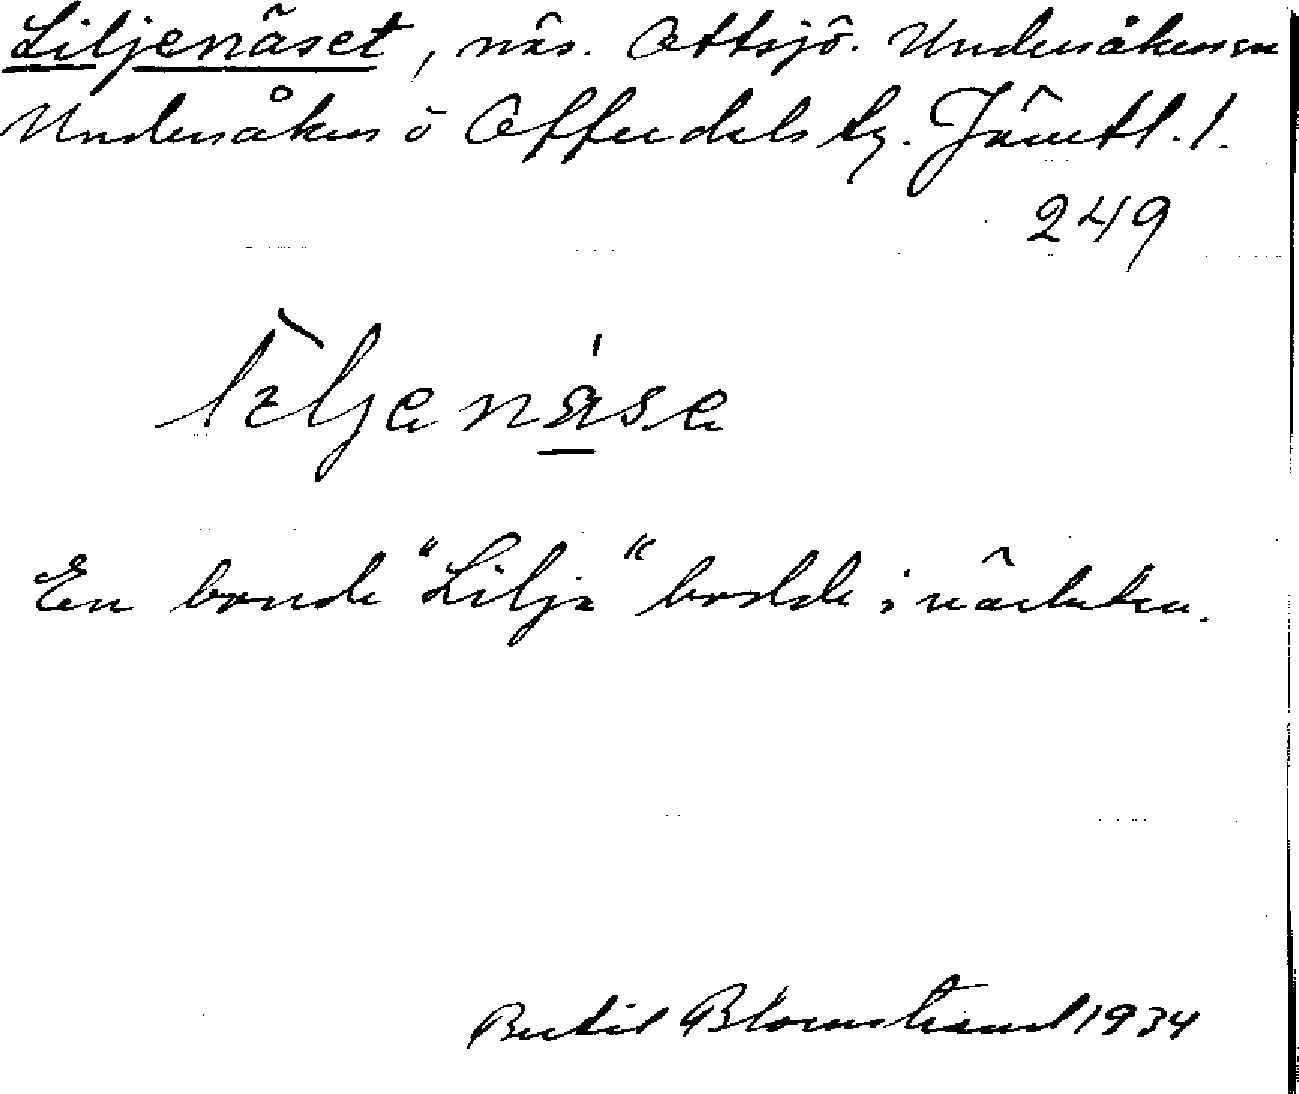 Liljenäset, näs. Ottsjö. Undersåkers sn
Undersåkers o Offerdals tg. Jämtl. l.
249
lìljenä́se
En bonde "Lilja" bodde i närheten.
Bertil Blomstrand 1934